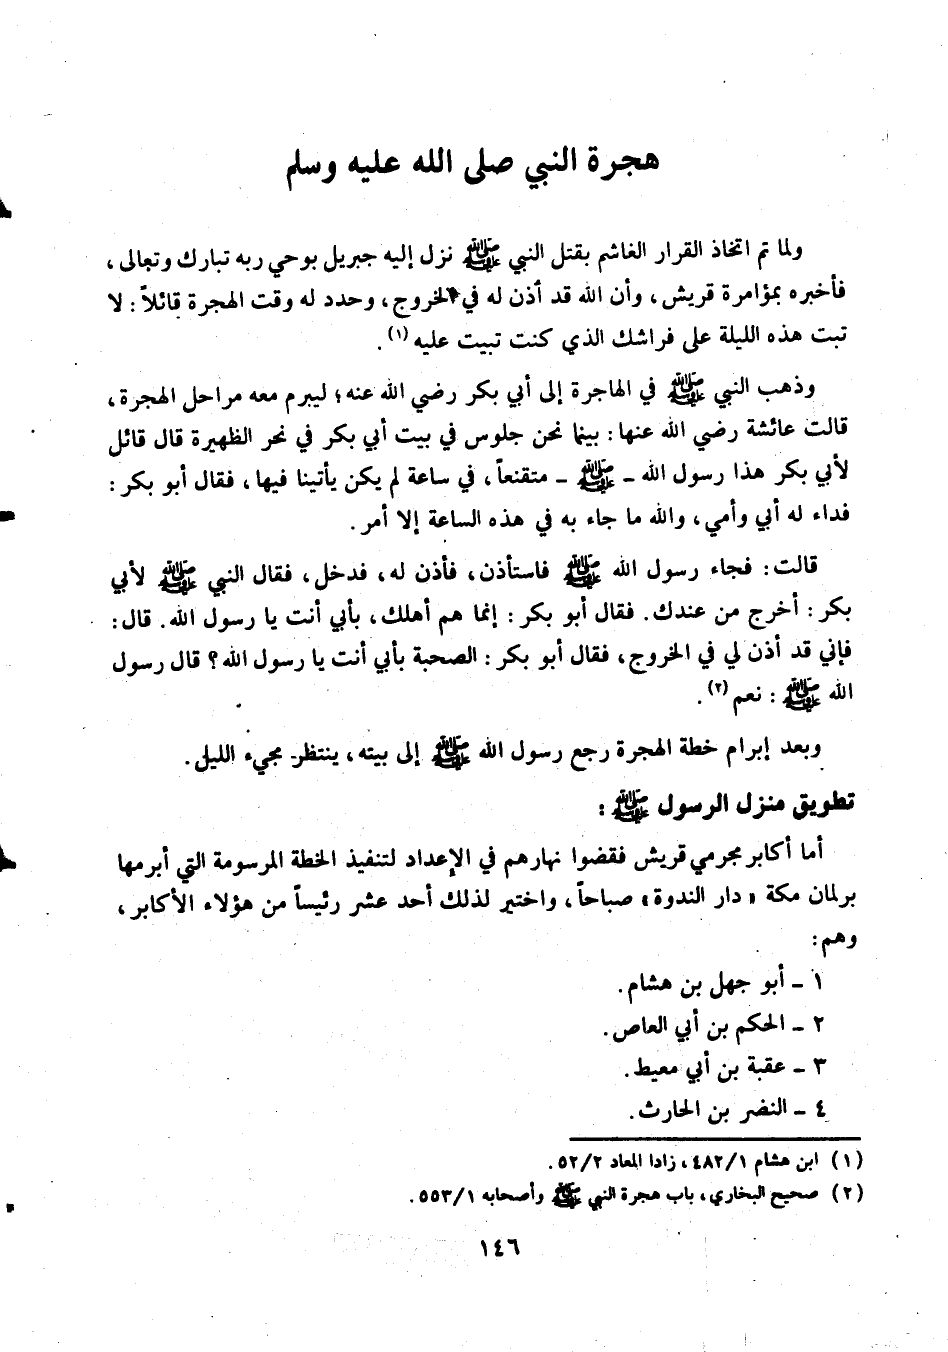 هجرة النبي صلى الله عليه وسلم
ولما تم اتخاذ القرار الغاشم بقتل النبي ﷺ نزل إليه جبريل بوحي ربه تبارك وتعالى،
فأخبره بمؤامرة قريش، وأن الله قد أذن له في الخروج، وحدد له وقت الهجرة قائلاً: لا
تبت هذه الليلة على فراشك الذي كنت تبيت عليه (١).
وذهب النبي ﷺ في الهاجرة إلى أبي بكر رضي الله عنه؛ ليبرم معه مراحل الهجرة،
قالت عائشة رضي الله عنها: بينما نحن جلوس في بيت أبي بكر في نحر الظهيرة قال قائل
لأبي بكر هذا رسول الله ـ ﷺ ـ متقنعاً، في ساعة لم يكن يأتينا فيها، فقال أبو بكر:
فداء له أبي وأمي، والله ما جاء به في هذه الساعة إلا أمر.
قالت: فجاء رسول الله ﷺ فاستأذن، فأذن له، فدخل، فقال النبي ﷺ لأبي
بكر: أخرج من عندك. فقال أبو بكر: إنما هم أهلك، بأبي أنت يا رسول الله. قال:
فإني قد أذن لي في الخروج، فقال أبو بكر: الصحبة بأبي أنت يا رسول الله؟ قال رسول
الله ﷺ: نعم (٢).
وبعد إبرام خطة الهجرة رجع رسول الله ﷺ إلى بيته، ينتظر مجيء الليل.
تطويق منزل الرسول ﷺ:
أما أكابر مجرمي قريش فقضوا نهارهم في الإعداد لتنفيذ الخطة المرسومة التي أبرمها
برلمان مكة «دار الندوة» صباحاً، واختير لذلك أحد عشر رئيساً من هؤلاء الأكابر،
وهم:
١ ـ أبو جهل بن هشام.
٢ ـ الحكم بن أبي العاص.
٣ ـ عقبة بن أبي معيط.
٤ ـ النضر بن الحارث.
(١) ابن هشام ٤٨٢/١، زادا المعاد ٥٢/٢.
(٢) صحيح البخاري، باب هجرة النبي ﷺ وأصحابه ٥٥٣/١.
١٤٦